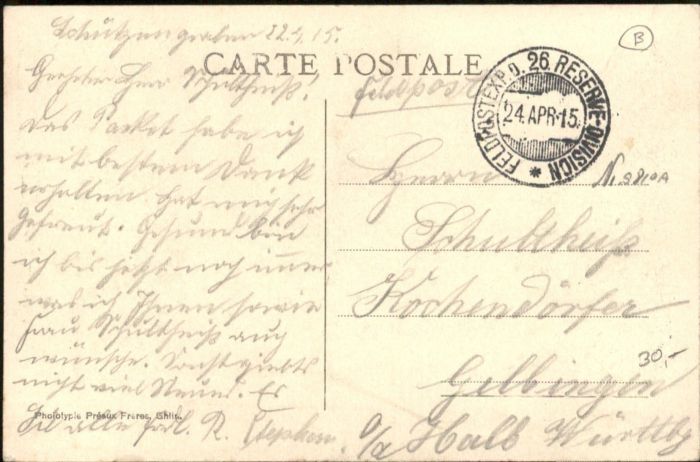 Schützengraben 22.4.15.
CARTE POSTALE
Geehrter Herr Schultheiß!
Das Packet habe ich
mit bestem Dank
erhalten hat mich sehr
Gefreut. Gesund bin
ich bis jetzt noch immer
was ich Ihnen sowie
Frau Schultheiß auch
wünsche. Sonst giebts
nicht viel Neues. Es
alle R. Stephan
Phototypie Préaux Frères, Ghlin.
Feldpost
FELDPOSTEXP. D. 26. RESERVE-DIVISION *
24.APR.15.
B
Herrn
Schultheiß
Kochendörfer
Gelbingen
O/A Hall Württbg
30,-